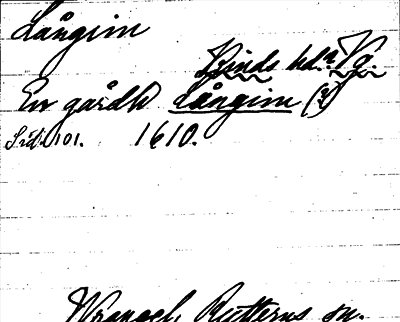 Långim
Kinds hd? Vg.
En gårdh Långim (?)
Sid. 101. 1610.
Wrangel, Rytterns